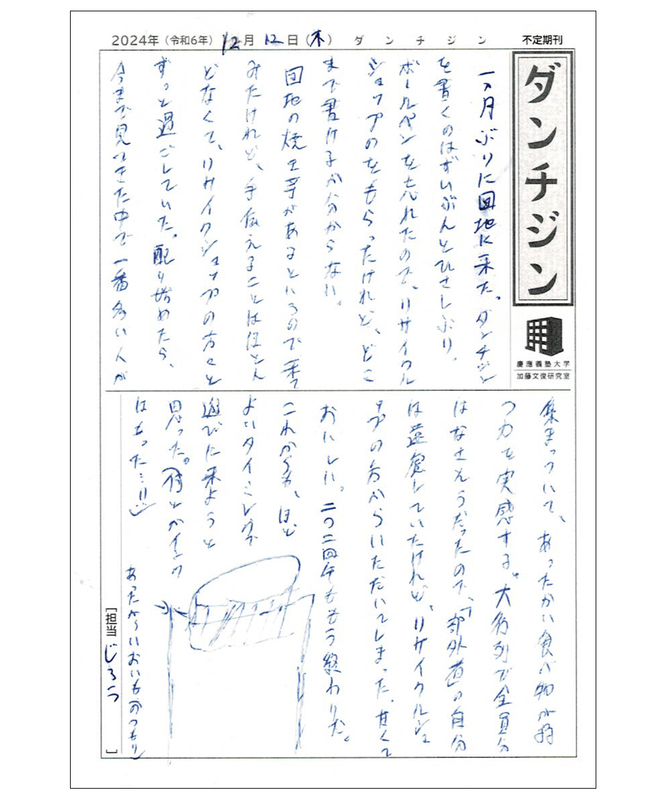 2024年（令和6年）12月12日（木） ダンチジン 不定期刊
ダンチジン
慶應義塾大学
加藤文俊研究室
一ヶ月ぶりに団地に来た。ダンチジン
を書くのはずいぶんとひさしぶり。
ボールペンを忘れたので、リサイクル
ショップのをもらったけれど、どこ
まで書けるか分からない。
団地の焼き芋があるというので来て
みたけれど、手伝えることはほとん
どなくて、リサイクショップの方々と
ずっと過ごしていた。配り始めたら、
今まで見てきた中で一番多い人が
集まっていて、あったかい食べ物が持
つ力を実感する。大行列で全員分
はなさそうだったので、「部外者の自分
は遠慮していたけれど、リサイクルショ
ップの方からいただいてしまった。甘くて
おいしい。二〇二四年ももう終わりだ。
これからも、ほど
よいタイミングで
遊びに来ようと
思った。（何とかインク
はもった…!!）
あったか〜いおいも（のつもり）
［担当 じろう ］